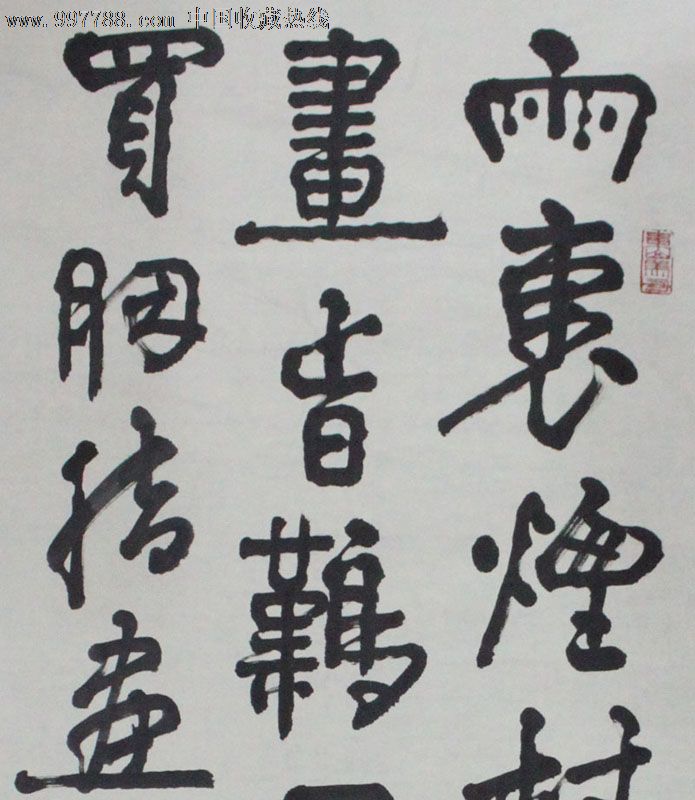 www.997788.com 中国收藏热线
雨裏煙村
畫旹難
買胭脂畫